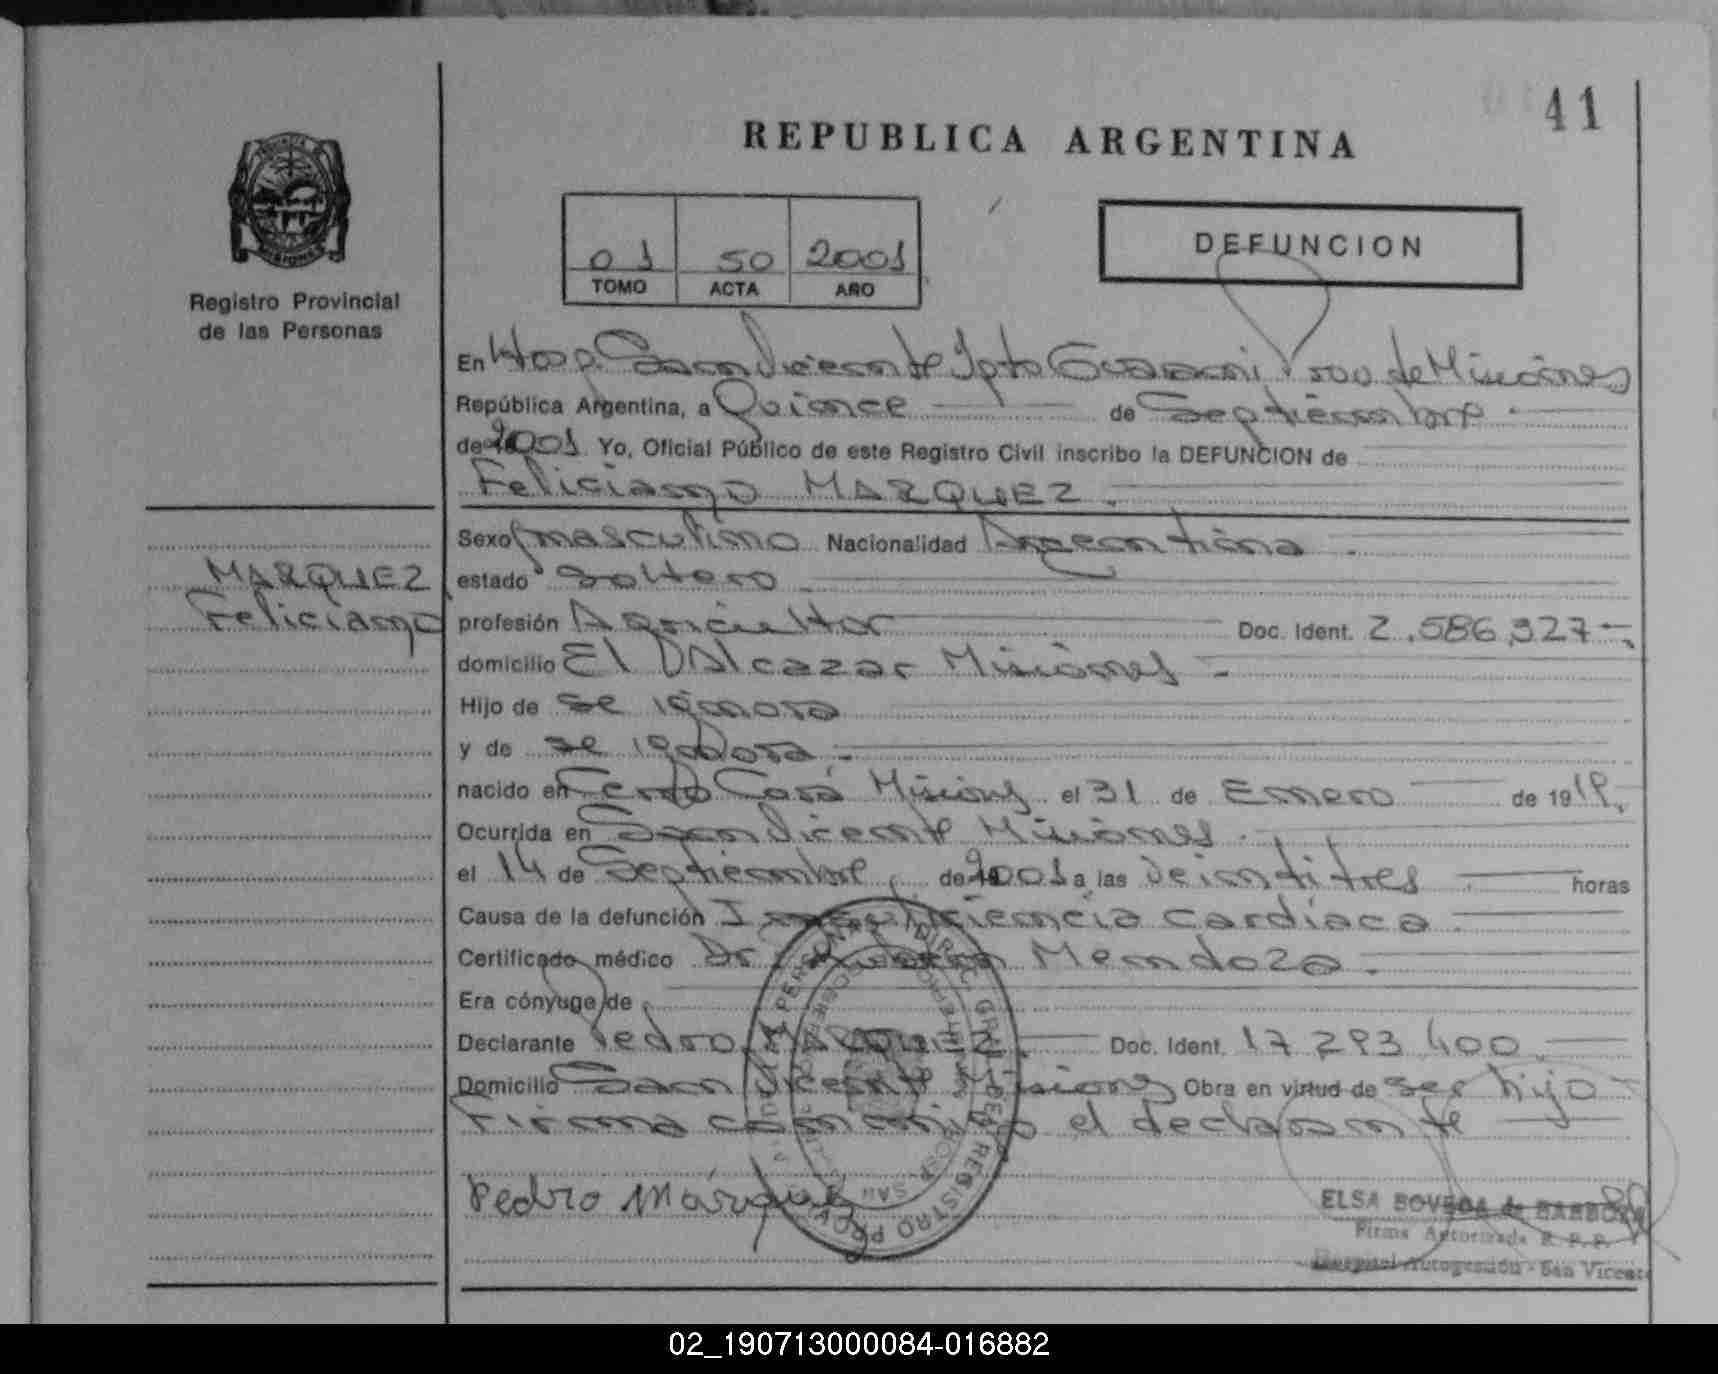 41
REPUBLICA ARGENTINA
Registro Provincial
de las Personas
01 50 2001
TOMO ACTA AÑO
DEFUNCION
En Hosp. San Vicente Dpto Guarani de Misiones
República Argentina, a Quince de Septiembre
de 2001 Yo, Oficial Público de este Registro Civil inscribo la DEFUNCION de
Feliciano MARQUEZ.
MARQUEZ
Feliciano
Sexo masculino Nacionalidad Argentina.
estado soltero
profesión Agricultor Doc. Ident. 2.586.327
domicilio El Alcazar Misiones
Hijo de se ignora
y de se ignora.
nacido en Cerro Corá Misiones el 31 de Enero de 1919.
Ocurrida en San Vicente Misiones.
el 14 de Septiembre de 2001 a las veintitres horas
Causa de la defunción Insuficiencia cardíaca.
Certificado médico Dr Mendoza.
Era cónyuge de
Declarante Pedro MARQUEZ. Doc. Ident. 17.293.400.
Domicilio San Vicente Misiones Obra en virtud de ser hijo
Firma conmigo el declarante
Pedro Márquez
ELSA BOVEDA de BARBOZA
Firma Autorizada R. P. P.
Hospital Autogestión - San Vicente
02_190713000084-016882